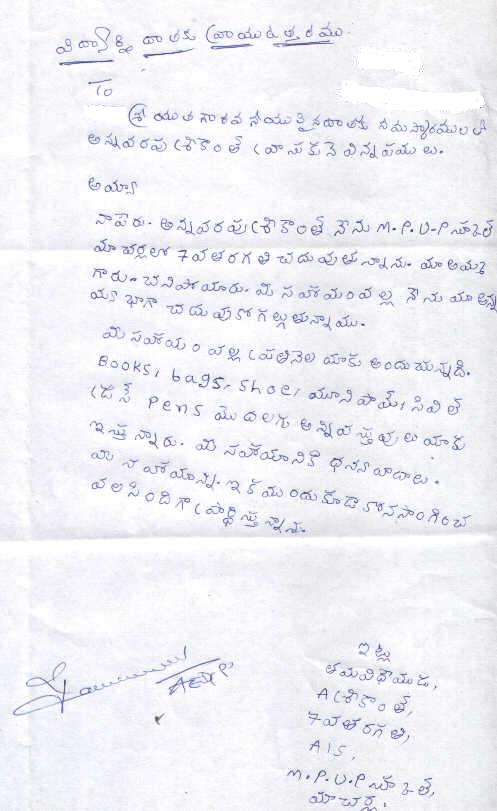 విద్యార్థి దాతకు వ్రాయు ఉత్తరము.
To
శ్రీయుత గౌరవనీయులైన దాతకు నమస్కారములతో
అన్నవరపు శ్రీకాంత్ వ్రాసుకునే విన్నపములు.
అయ్యా
నాపేరు. అన్నవరపు శ్రీకాంత్ నేను M.P.U.P స్కూల్
మాచర్లలో 7వ తరగతి చదువుతున్నాను. మా అమ్మ
గారు. చనిపోయారు. మీ సహాయం వల్ల నేను మా అన్న
మా బాగా చదువుకోగల్గుతున్నాము.
మీ సహాయం వల్ల ప్రతినెల మాకు అందుచున్నది.
Books, bags, shoe, యూనిఫామ్, సివిల్
డ్రస్ pens మొదలగు అన్ని వస్తువులు మాకు
ఇస్తున్నారు. మీ సహాయానికి ధన్యవాదాలు.
మీ సహాయాన్ని. ఇక ముందు కూడా కొనసాగించ
వలసిందిగా ప్రార్థిస్తున్నాను.
ఇట్లు
తమ విధేయుడు,
A శ్రీకాంత్,
7వ తరగతి,
A/S,
M.P.U.P స్కూల్,
మాచర్ల.